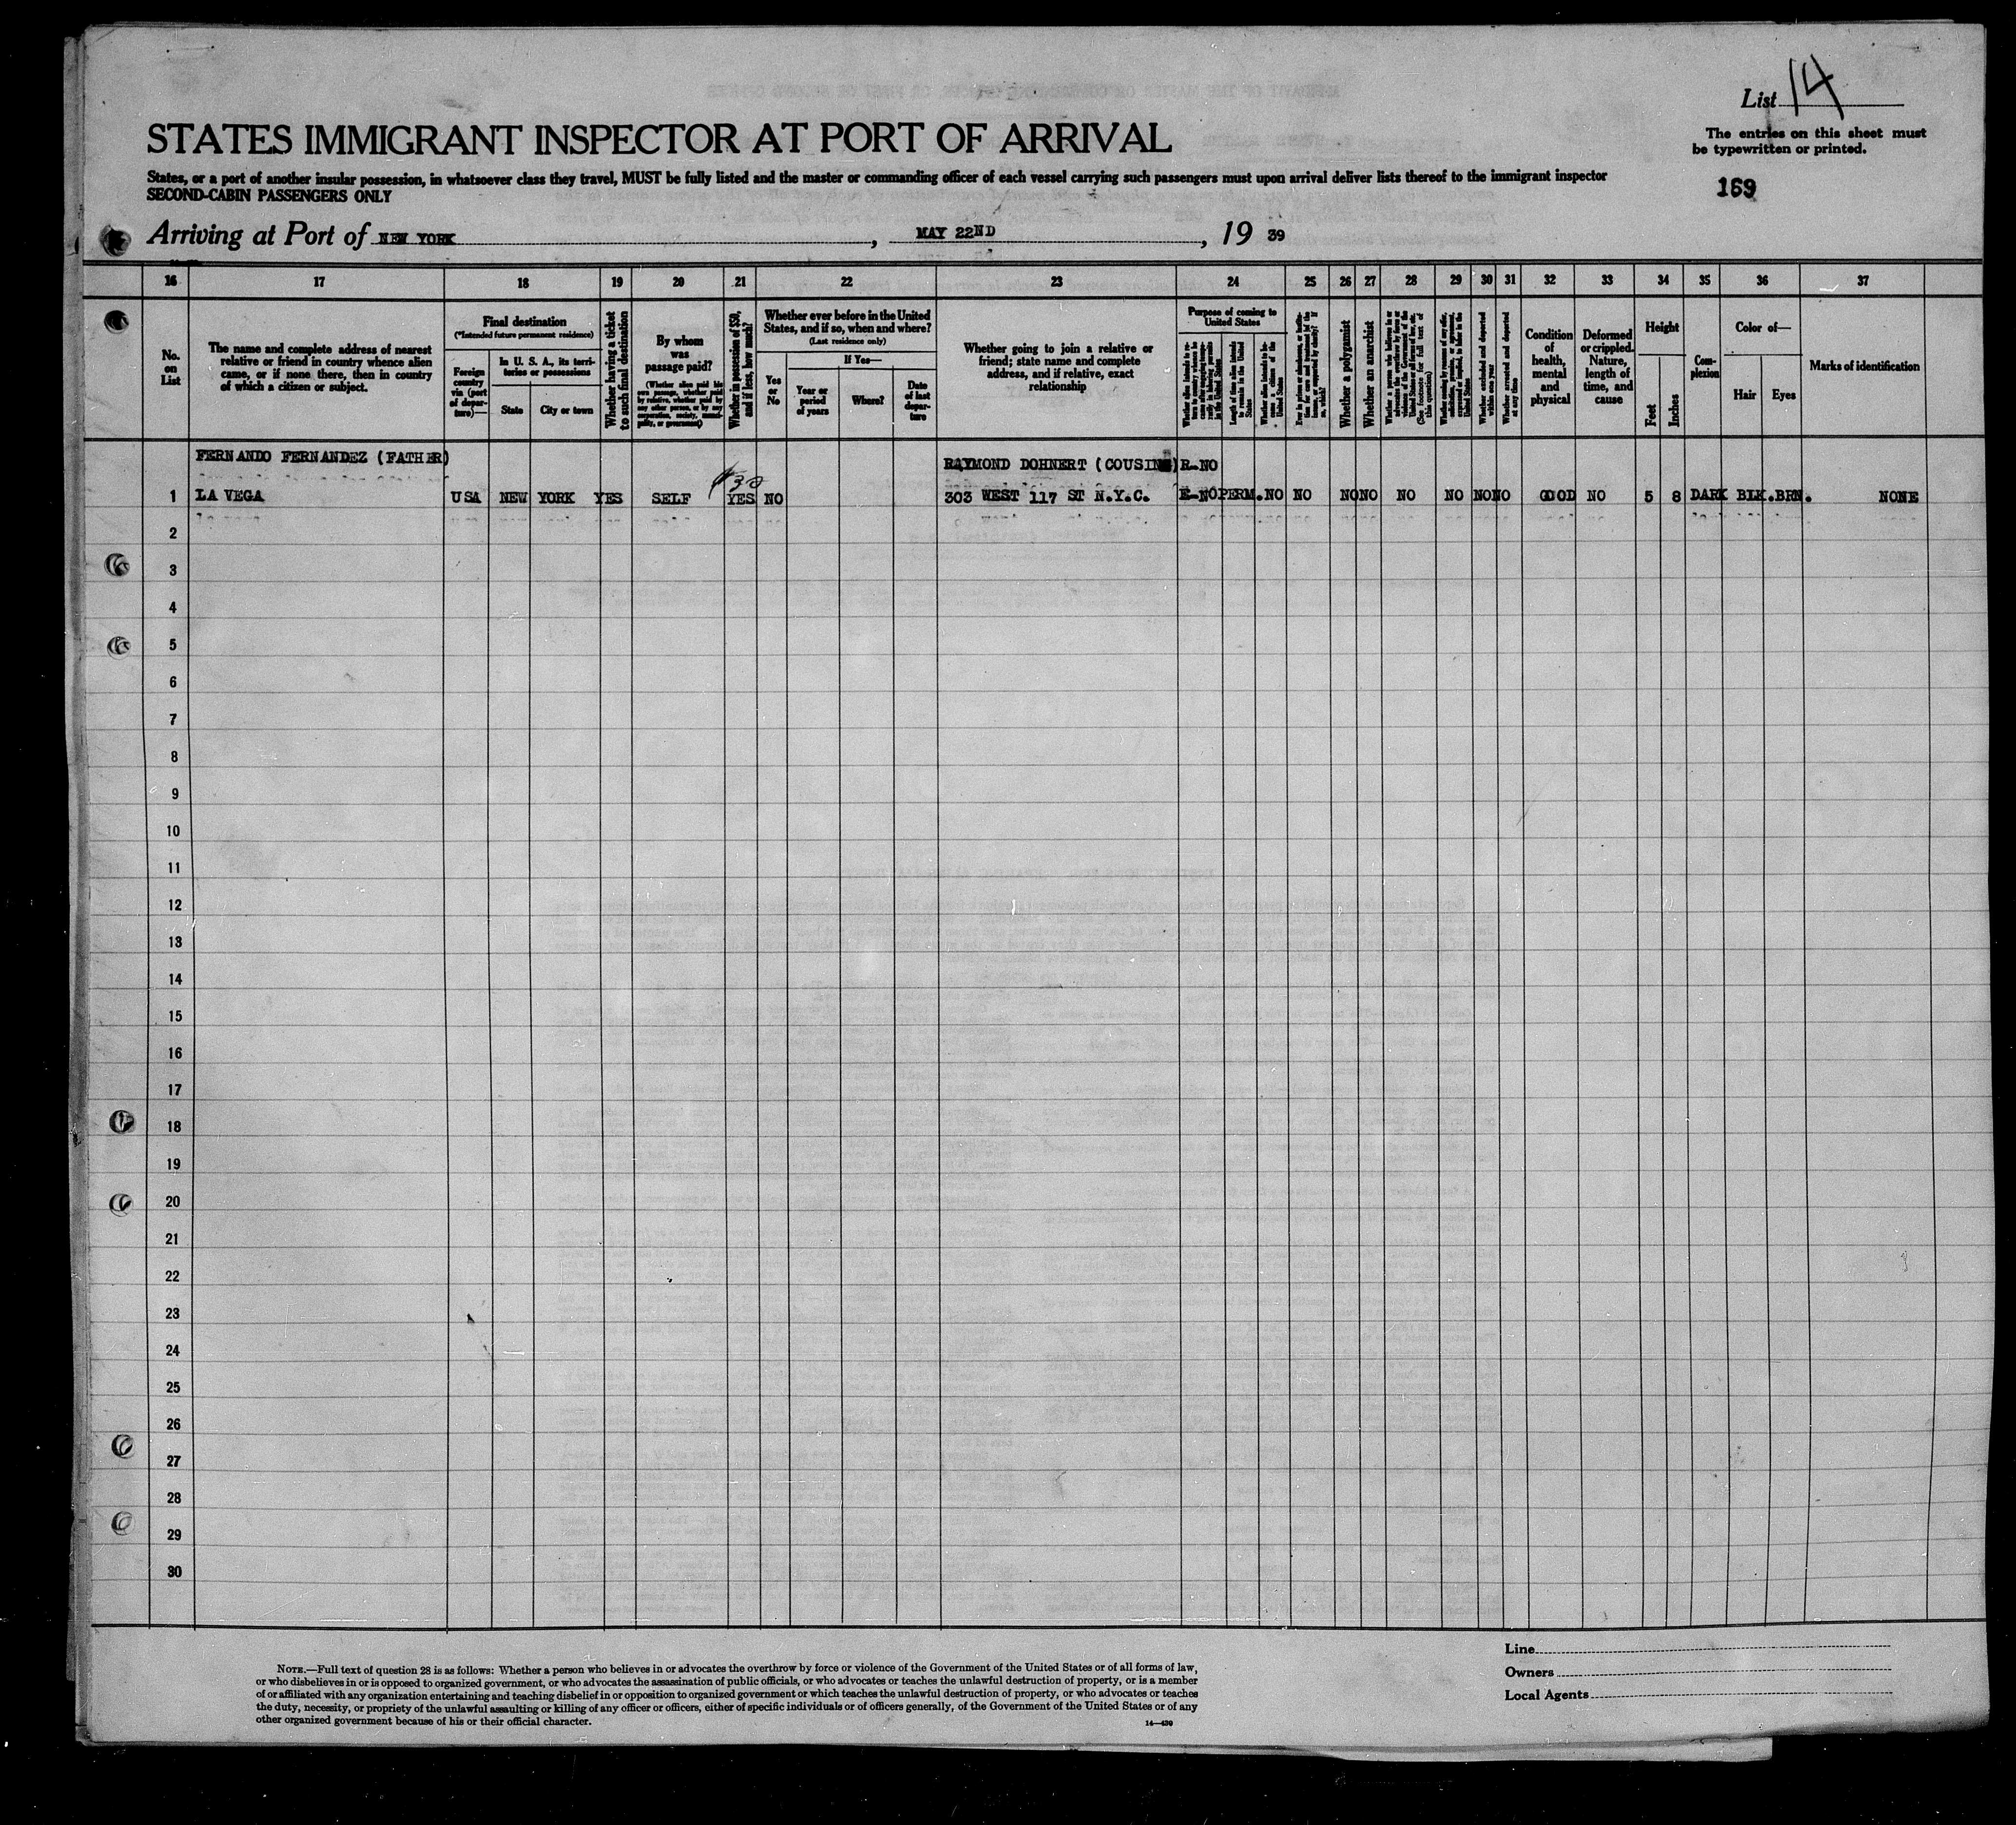 List 14
STATES IMMIGRANT INSPECTOR AT PORT OF ARRIVAL
The entries on this sheet must
be typewritten or printed.
States, or a port of another insular possession, in whatsoever class they travel, MUST be fully listed and the master or commanding officer of each vessel carrying such passengers must upon arrival deliver lists thereof to the immigrant inspector
SECOND-CABIN PASSENGERS ONLY
169
Arriving at Port of NEW YORK, MAY 22ND, 19 39
16 17 18 19 20 21 22 23 24 25 26 27 28 29 30 31 32 33 34 35 36 37
No.
on
List
The name and complete address of nearest
relative or friend in country whence alien
came, or if none there, then in country
of which a citizen or subject.
Final destination
(*Intended future permanent residence)
Foreign
country
via (port
of depar-
ture)—
In U. S. A., its terri-
tories or possessions
State
City or town
Whether having a ticket
to such final destination
By whom
was
passage paid?
(Whether alien paid his
own passage, whether paid
by relative, whether paid by
any other person, or by any
corporation, society, munici-
pality, or government)
Whether in possession of $50,
and if less, how much?
Whether ever before in the United
States, and if so, when and where?
(Last residence only)
Yes
or
No
If Yes—
Year or
period
of years
Where?
Date
of last
depar-
ture
Whether going to join a relative or
friend; state name and complete
address, and if relative, exact
relationship
Purpose of coming to
United States
Length of time alien intends
to remain in the United
States
Whether alien intends to be-
come a citizen of the
United States
Whether a polygamist
Whether an anarchist
(See footnote for full text of
this question)
Whether excluded and deported
within one year
Whether arrested and deported
at any time
Condition
of
health,
mental
and
physical
Deformed
or crippled.
Nature,
length of
time, and
cause
Height
Feet
Inches
Com-
plexion
Color of—
Hair
Eyes
Marks of identification
FERNANDO FERNANDEZ (FATHER) RAYMOND DOHNERT (COUSIN) R-NO
1 LA VEGA USA NEW YORK YES SELF YES NO 303 WEST 117 ST N.Y.C. E-NO PERM. NO NO NO NO NO NO NO NO GOOD NO 5 8 DARK BLK. BRN. NONE
2
3
4
5
6
7
8
9
10
11
12
13
14
15
16
17
18
19
20
21
22
23
24
25
26
27
28
29
30
NOTE.—Full text of question 28 is as follows: Whether a person who believes in or advocates the overthrow by force or violence of the Government of the United States or of all forms of law,
or who disbelieves in or is opposed to organized government, or who advocates the assassination of public officials, or who advocates or teaches the unlawful destruction of property, or is a member
of or affiliated with any organization entertaining and teaching disbelief in or opposition to organized government or which teaches the unlawful destruction of property, or who advocates or teaches
the duty, necessity, or propriety of the unlawful assaulting or killing of any officer or officers, either of specific individuals or of officers generally, of the Government of the United States or of any
other organized government because of his or their official character.
14—430
Line
Owners
Local Agents